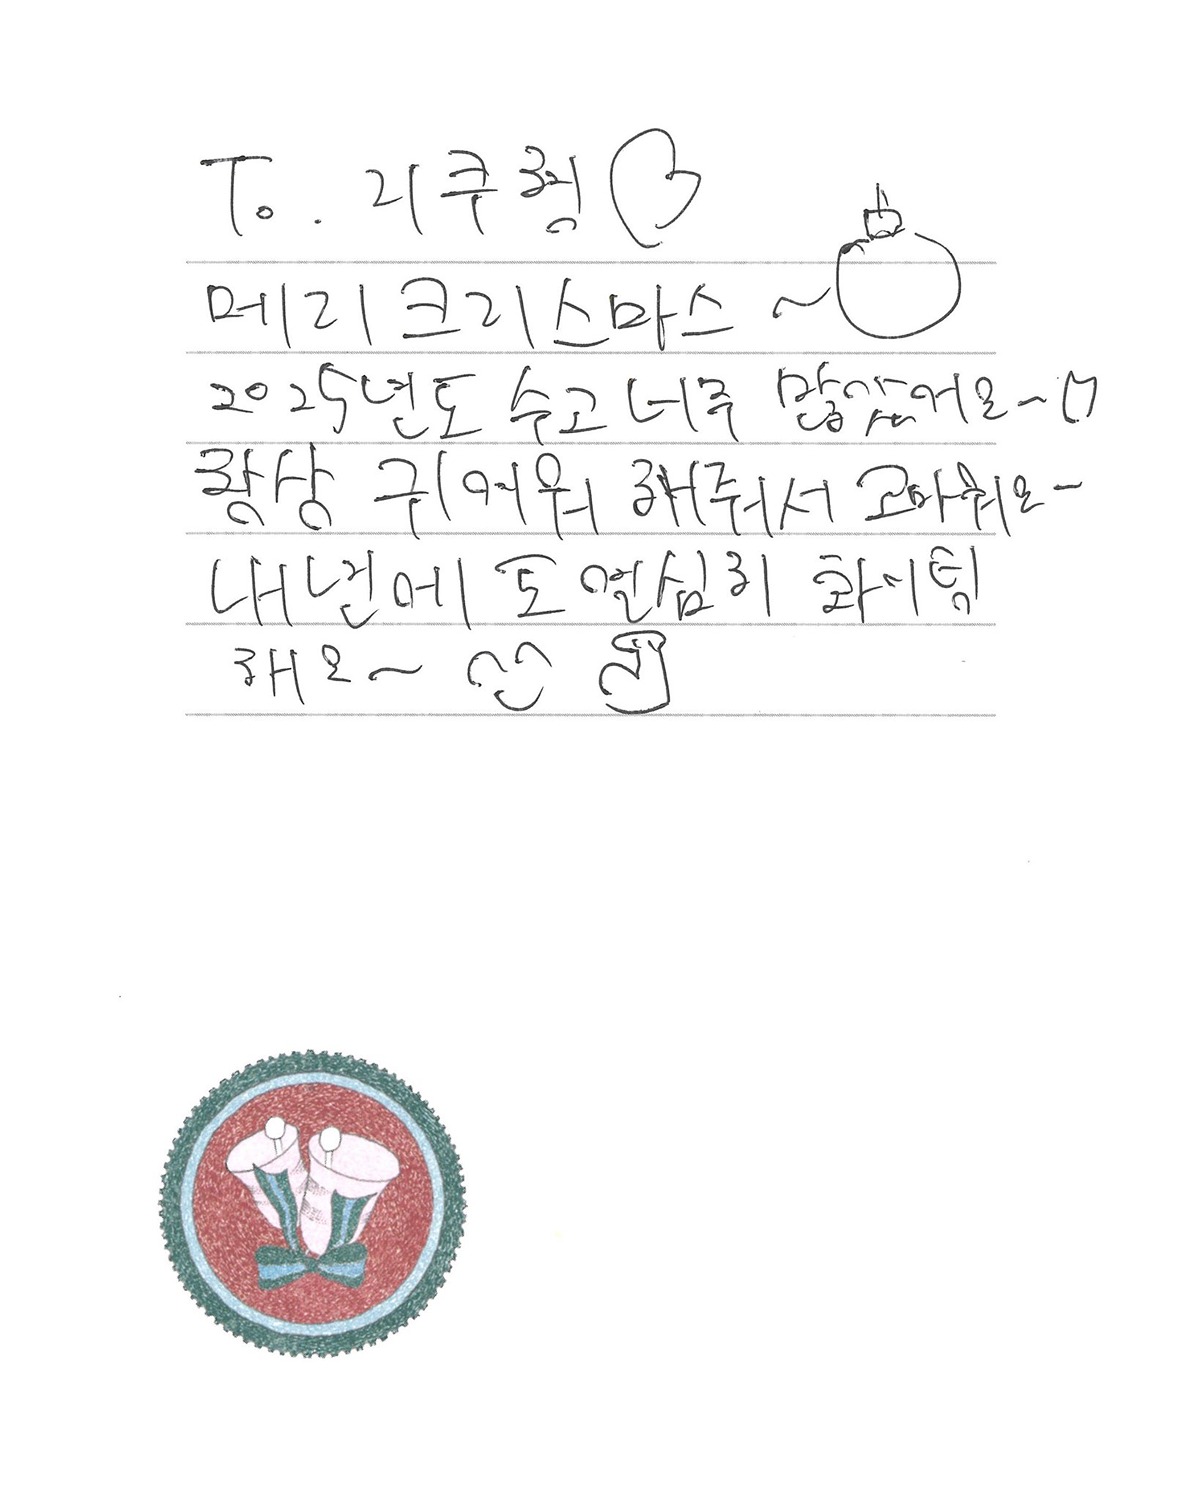 To. 리쿠형♡
메리크리스마스 ~
2025년도 수고 너무 많았어요~♡
항상 귀여워 해줘서 고마워요~
내년에도 열심히 화이팅
해요~